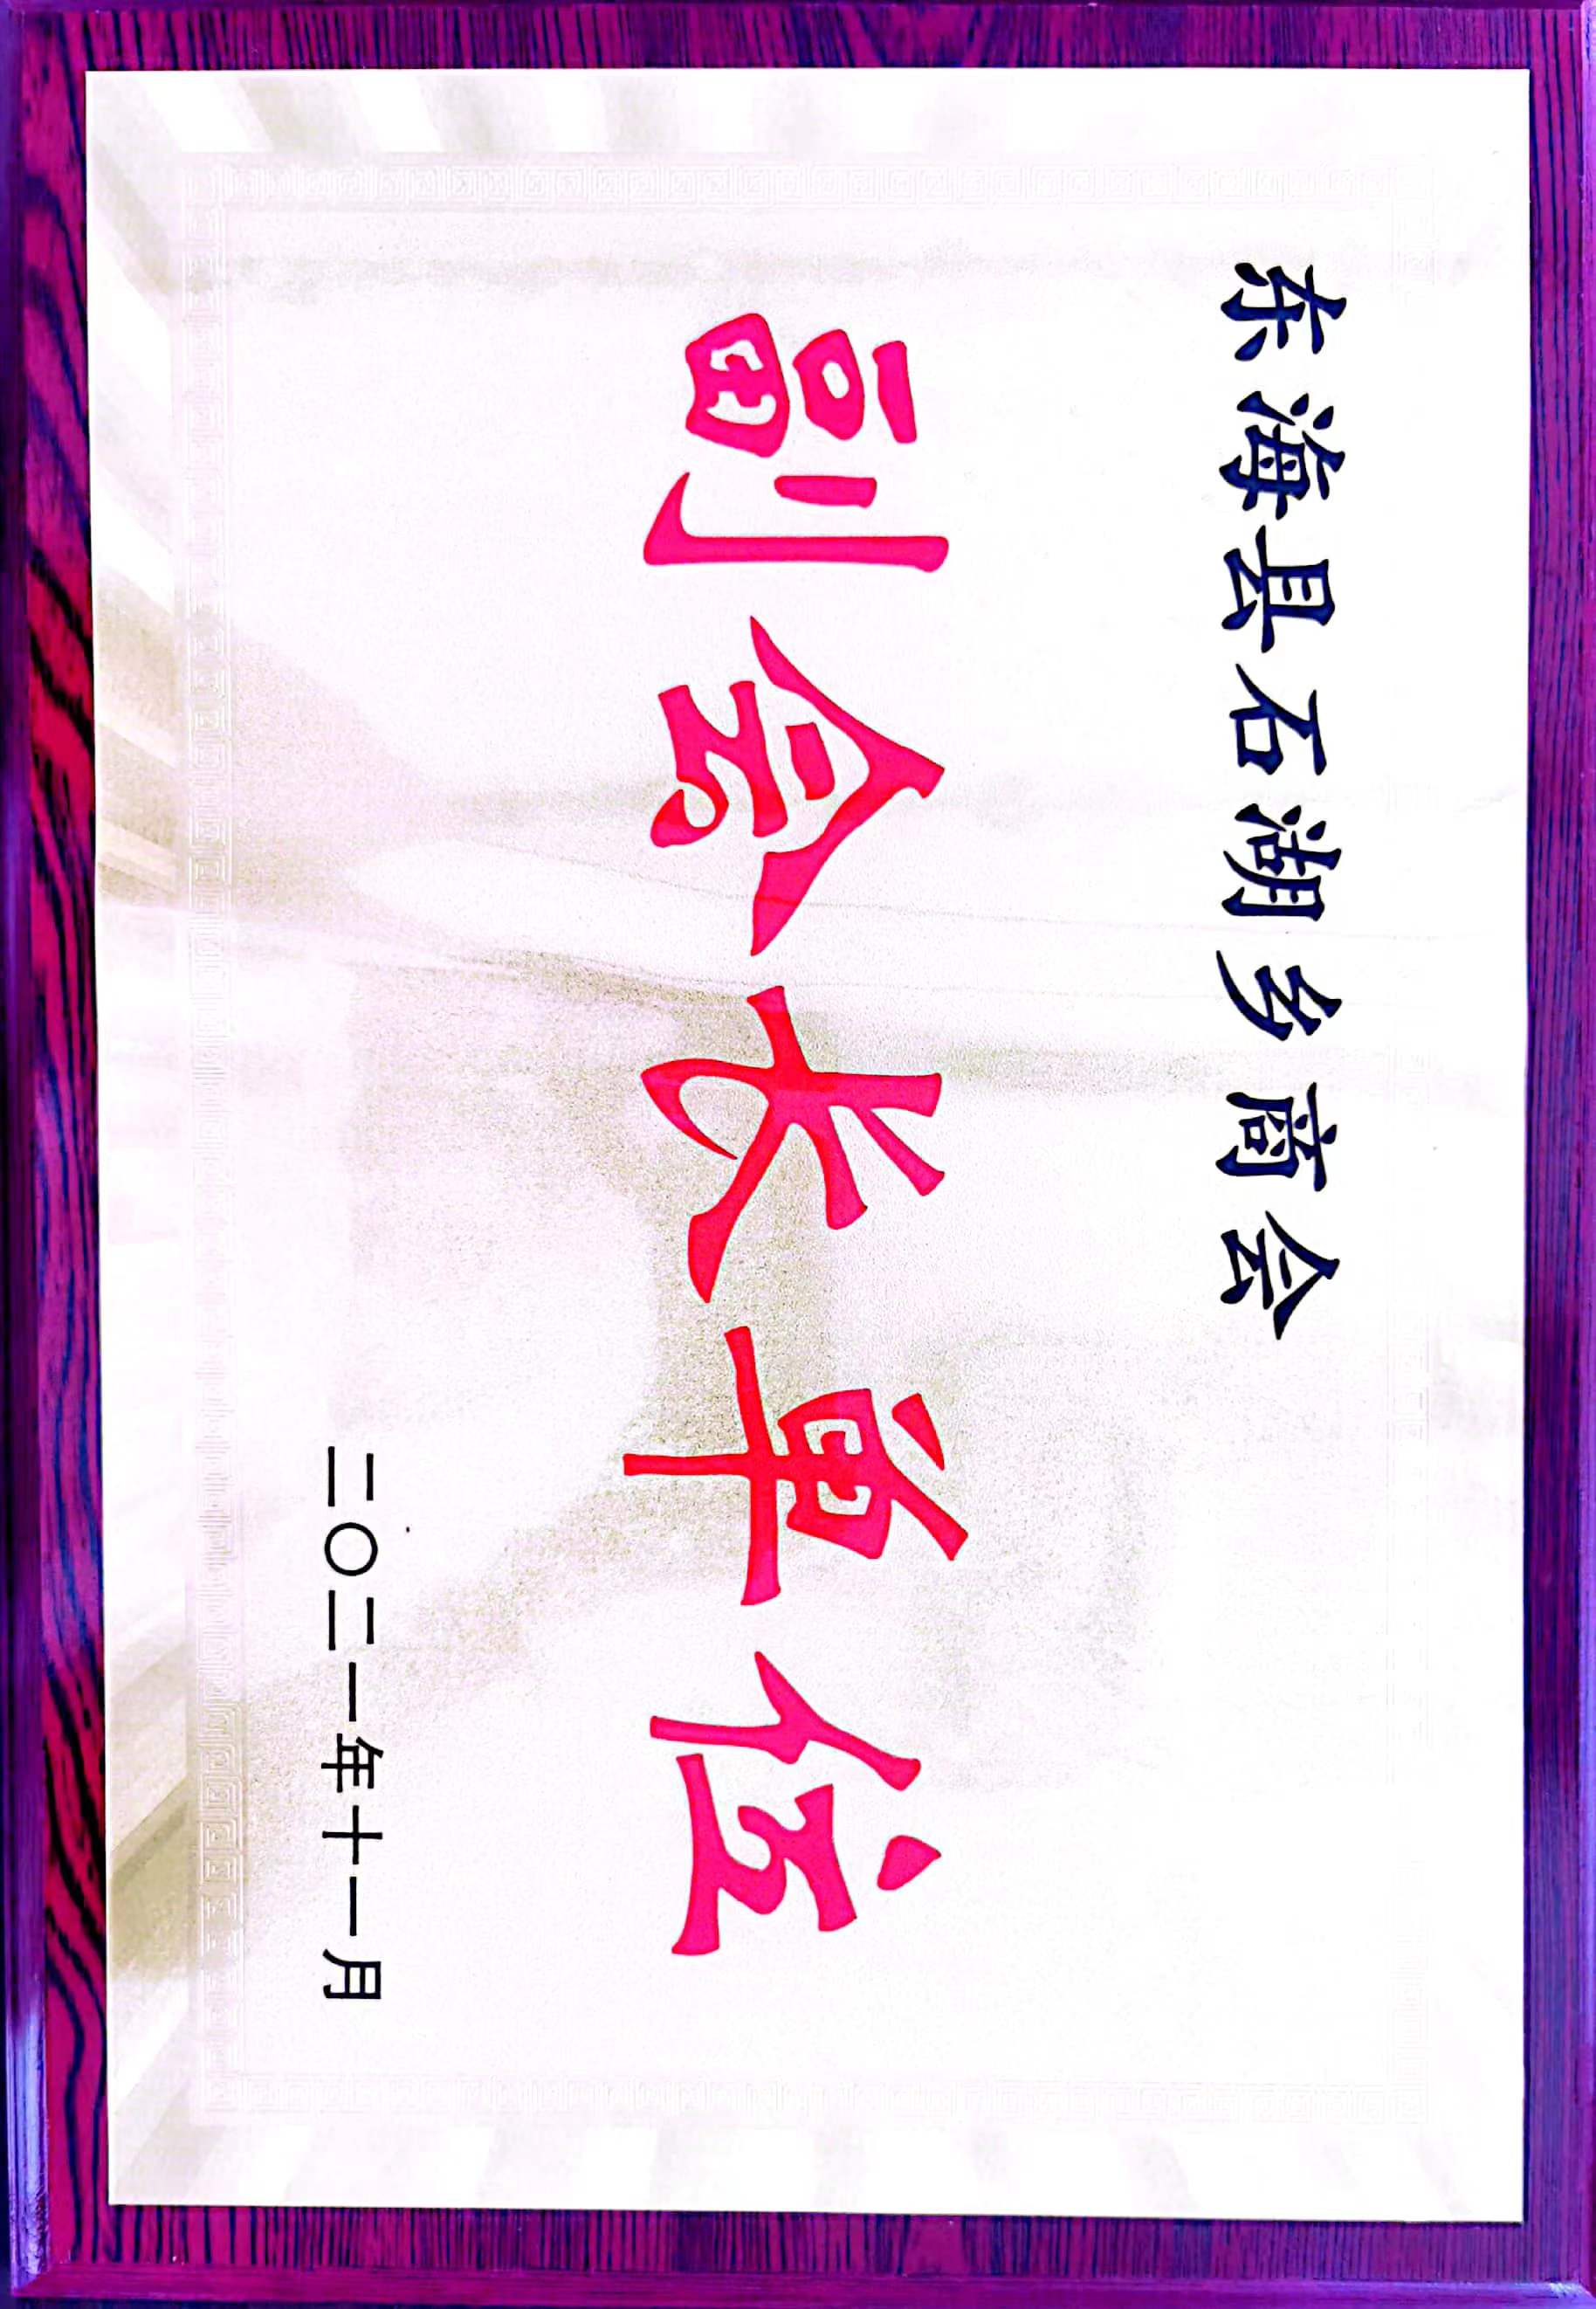 东海县石湖乡商会
副会长单位
二〇二一年十一月